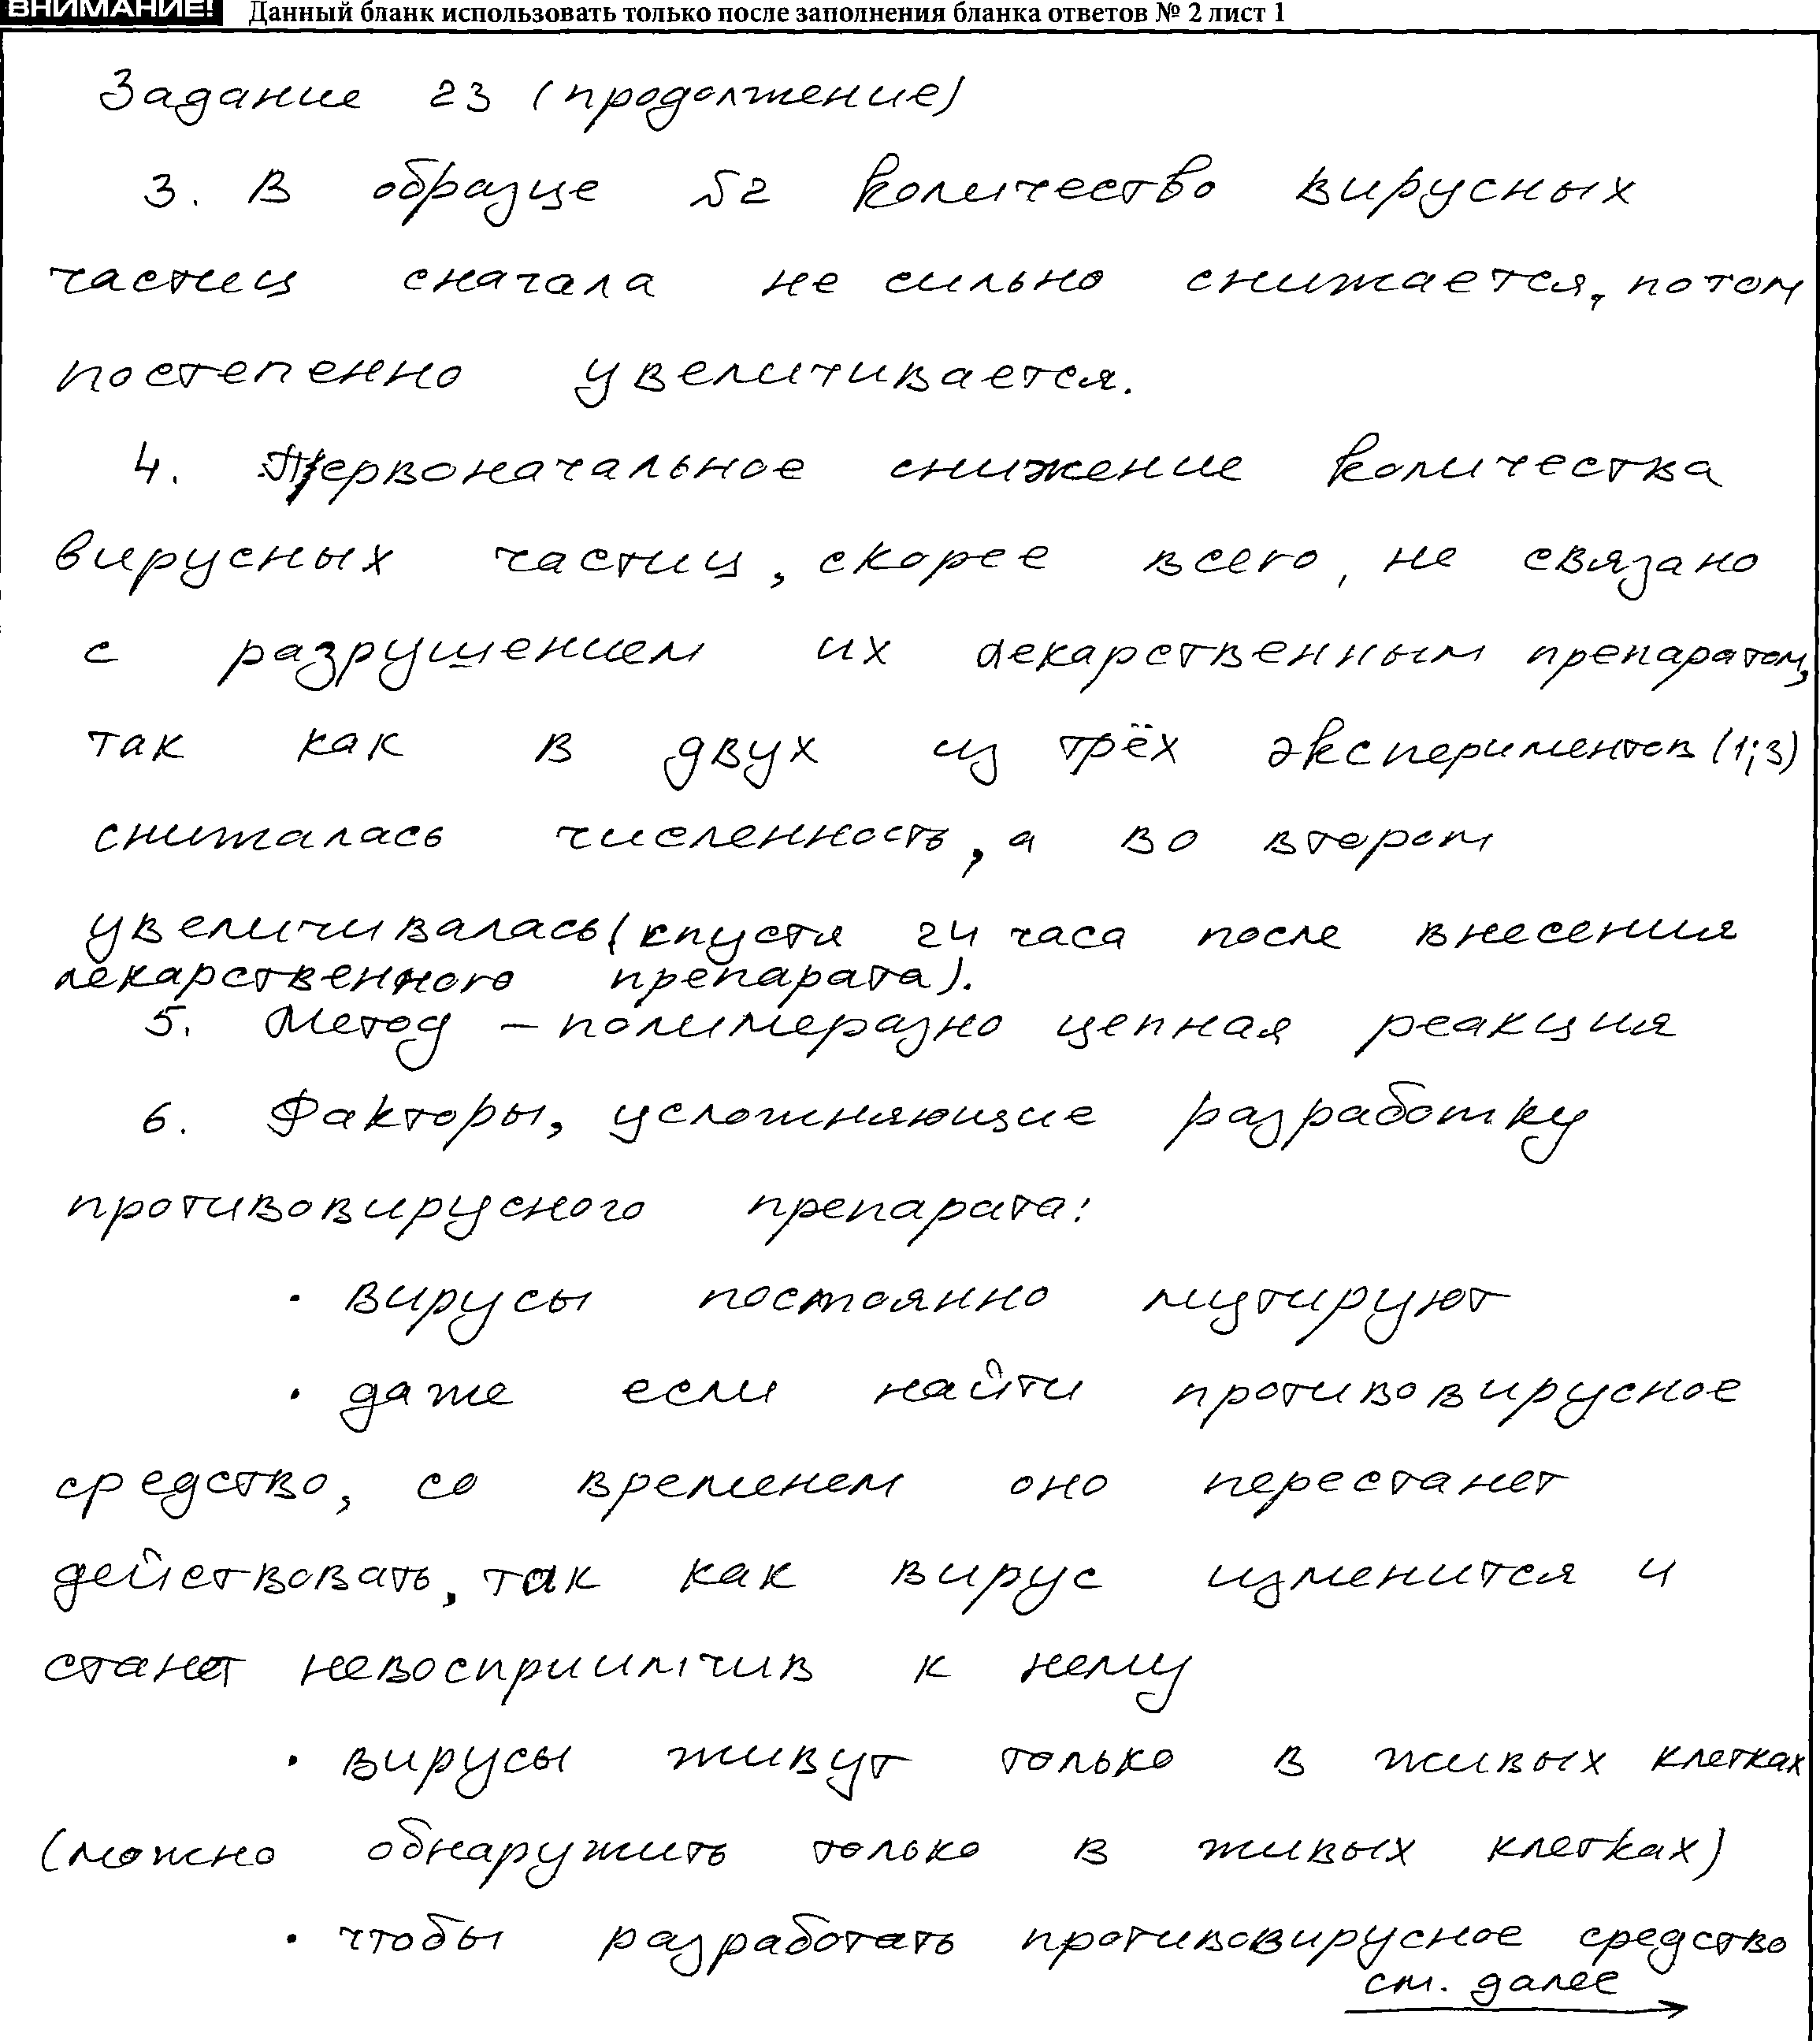 ВНИМАНИЕ! Данный бланк использовать только после заполнения бланка ответов № 2 лист 1
Задание 23 (продолжение)
3. В образце №2 количество вирусных
частиц сначала не сильно снижается, потом
постепенно увеличивается.
4. Первоначальное снижение количества
вирусных частиц, скорее всего, не связано
с разрушением их лекарственным препаратом,
так как в двух из трёх экспериментов (1;3)
снижалась численность, а во втором
увеличивалась (спустя 24 часа после внесения
лекарственного препарата).
5. Метод – полимеразно цепная реакция
6. Факторы, усложняющие разработку
противовирусного препарата:
· вирусы постоянно мутируют
· даже если найти противовирусное
средство, со временем оно перестанет
действовать, так как вирус изменится и
станет невосприимчив к нему
· вирусы живут только в живых клетках
(можно обнаружить только в живых клетках)
· чтобы разработать противовирусное средство
см. далее →